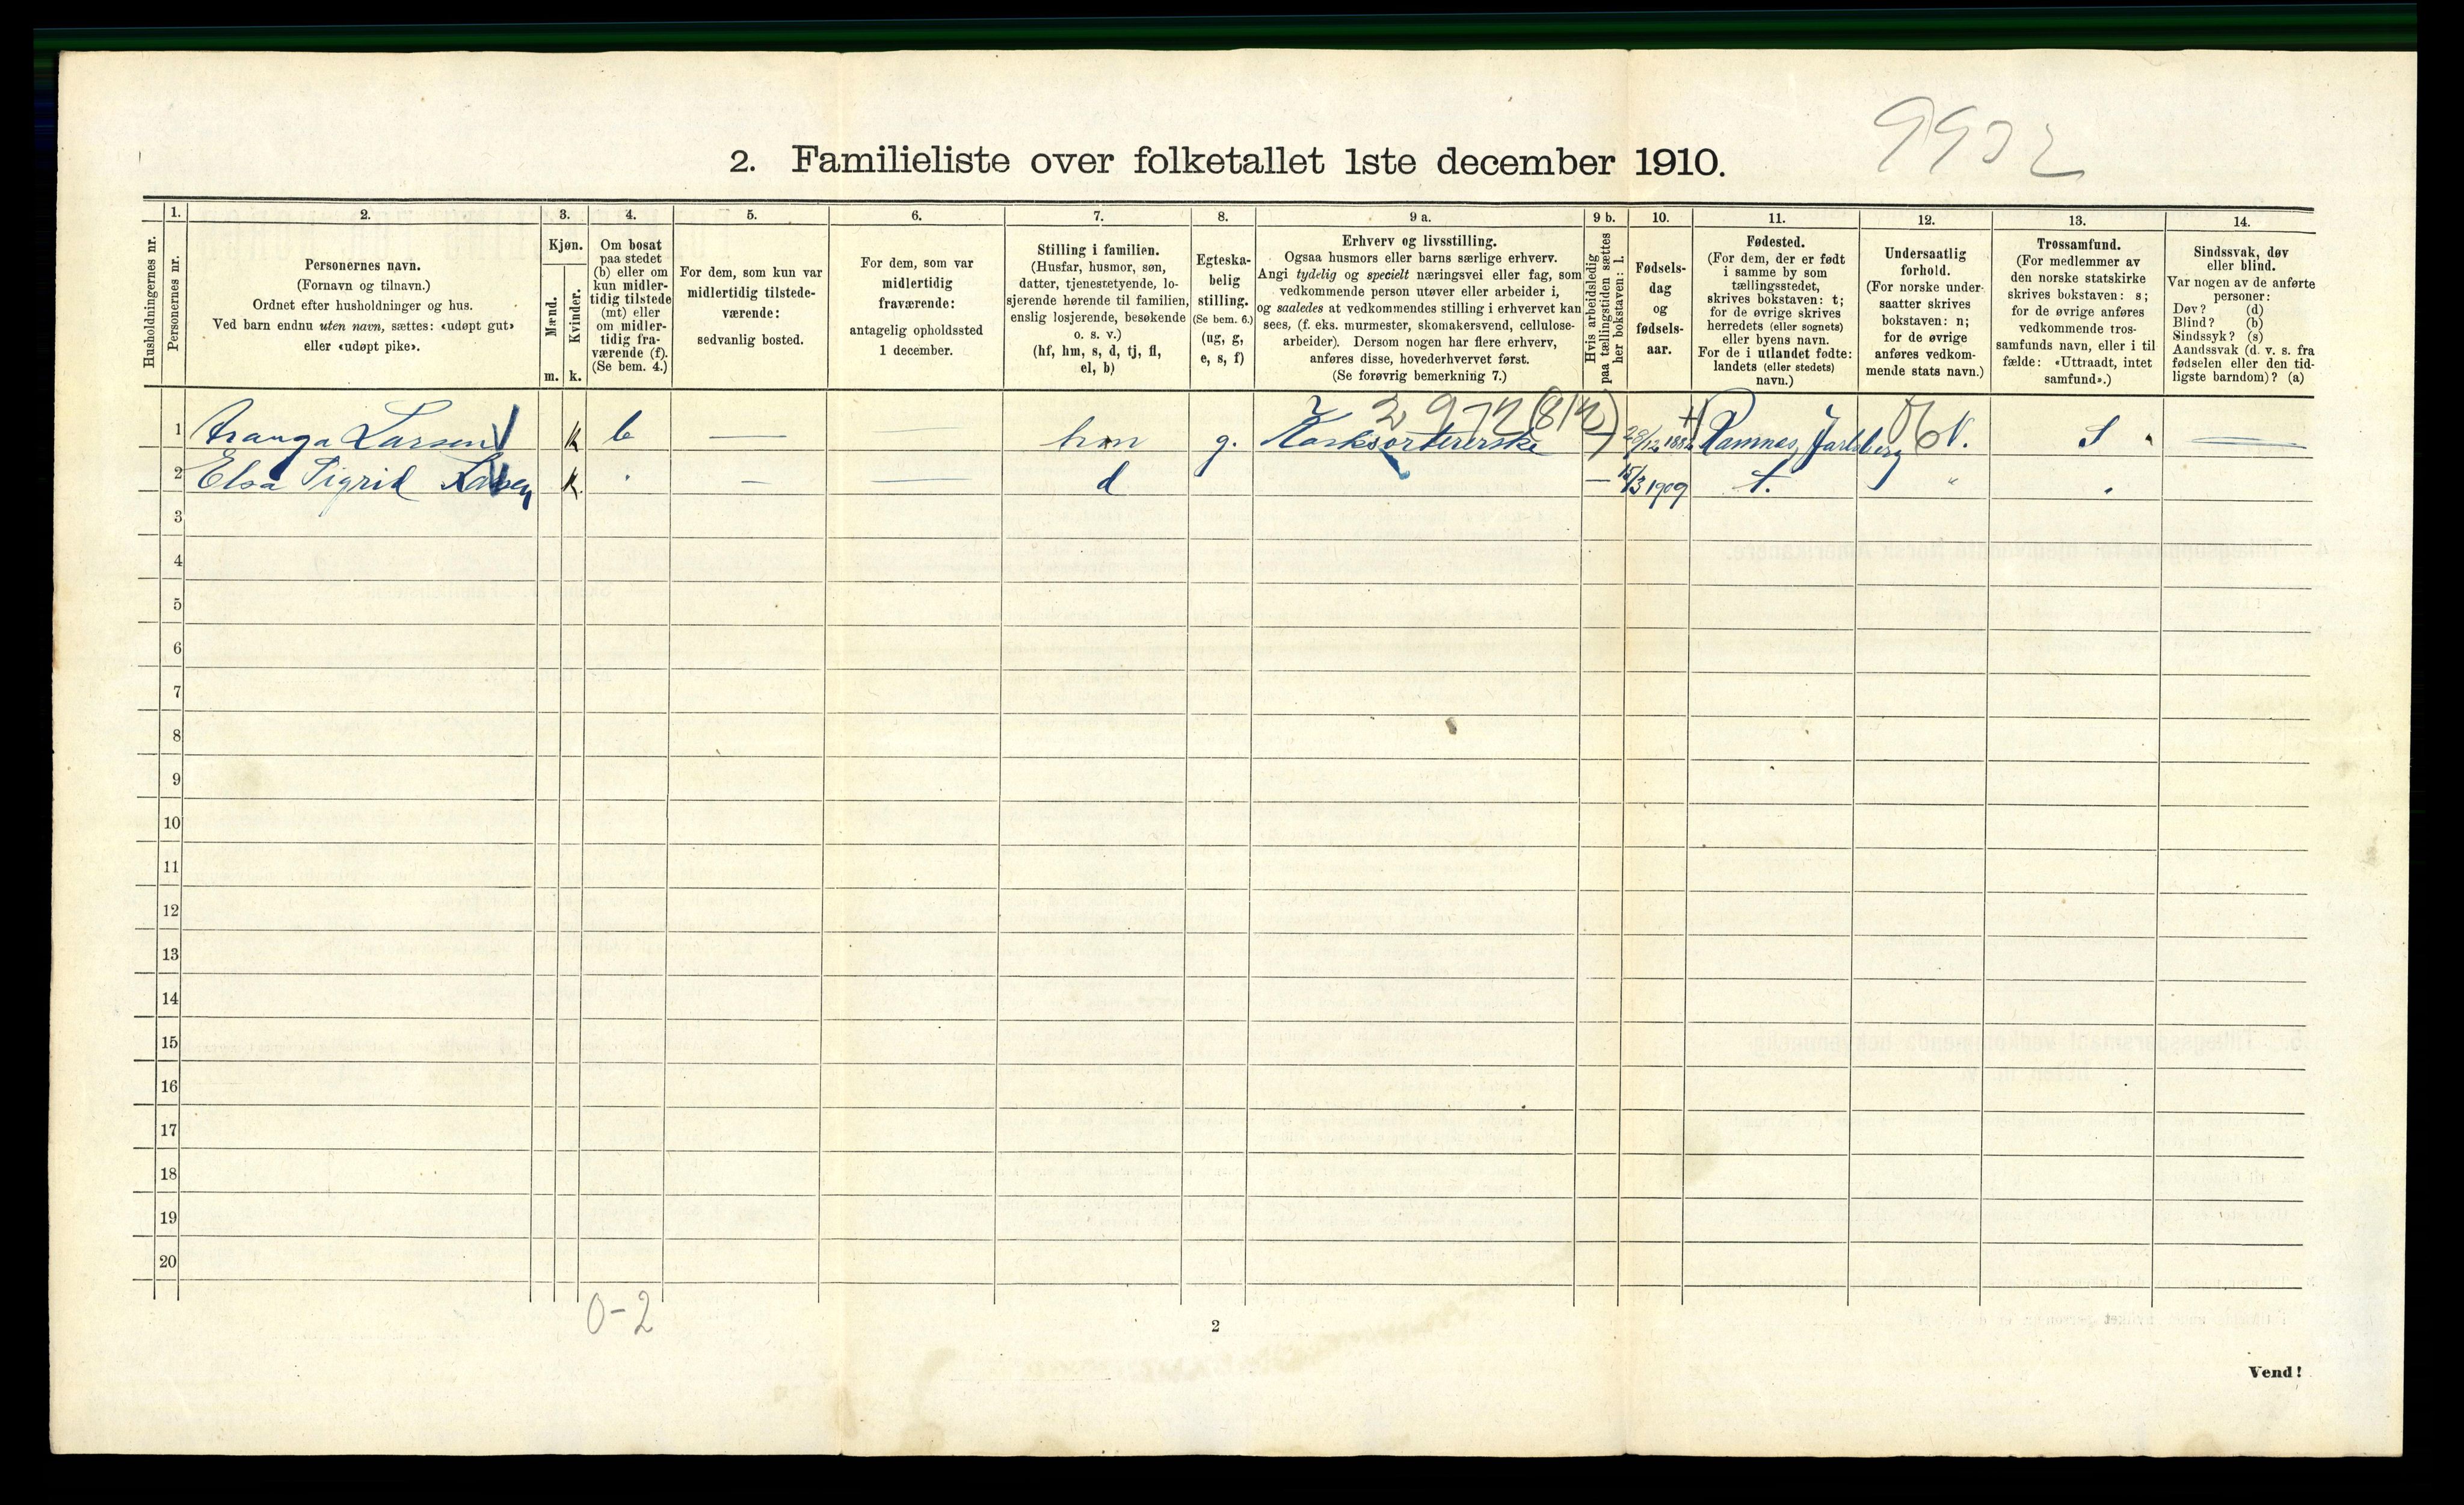 9902
2. Familieliste over folketallet 1ste december 1910.
Husholdningernes nr.
1. Personernes nr.
2. Personernes navn. (Fornavn og tilnavn.) Ordnet efter husholdninger og hus. Ved barn endnu uten navn, sættes: «udøpt gut» eller «udøpt pike».
3. Kjøn. Mænd. m. Kvinder. k.
4. Om bosat paa stedet (b) eller om kun midler-tidig tilstede (mt) eller om midler-tidig fra-værende (f). (Se bem. 4.)
5. For dem, som kun var midlertidig tilstede-værende: sedvanlig bosted.
6. For dem, som var midlertidig fraværende: antagelig opholdssted 1 december.
7. Stilling i familien. (Husfar, husmor, søn, datter, tjenestetyende, lo-sjerende hørende til familien, enslig losjerende, besøkende o. s. v.) (hf, hm, s, d, tj, fl, el, b)
8. Egteska-belig stilling. (Se bem. 6.) (ug, g, e, s, f)
9 a. Erhverv og livsstilling. Ogsaa husmors eller barns særlige erhverv. Angi tydelig og specielt næringsvei eller fag, som vedkommende person utøver eller arbeider i, og saaledes at vedkommendes stilling i erhvervet kan sees, (f. eks. murmester, skomakersvend, cellulose-arbeider). Dersom nogen har flere erhverv, anføres disse, hovederhvervet først. (Se forøvrig bemerkning 7.)
9 b. Hvis arbeidsledig paa tællingstiden sættes her bokstaven: l.
10. Fødsels-dag og fødsels-aar.
11. Fødested. (For dem, der er født i samme by som tællingsstedet, skrives bokstaven: t; for de øvrige skrives herredets (eller sognets) eller byens navn. For de i utlandet fødte: landets (eller stedets) navn.)
12. Undersaatlig forhold. (For norske under-saatter skrives bokstaven: n; for de øvrige anføres vedkom-mende stats navn.)
13. Trossamfund. (For medlemmer av den norske statskirke skrives bokstaven: s; for de øvrige anføres vedkommende tros-samfunds navn, eller i til fælde: «Uttraadt, intet samfund».)
14. Sindssvak, døv eller blind. Var nogen av de anførte personer: Døv? (d) Blind? (b) Sindssyk? (s) Aandssvak (d. v. s. fra fødselen eller den tid-ligste barndom)? (a)
1 Larsen k b — — hm g. Korksortererske — 28/12 Ramnes, Jarlsberg N. S —
2 Elsa Sigrid Larsen k. — — d — 15/3 1909 t. "
3
4
5
6
7
8
9
10
11
12
13
14
15
16
17
18
19
20
0-2
2
Vend!